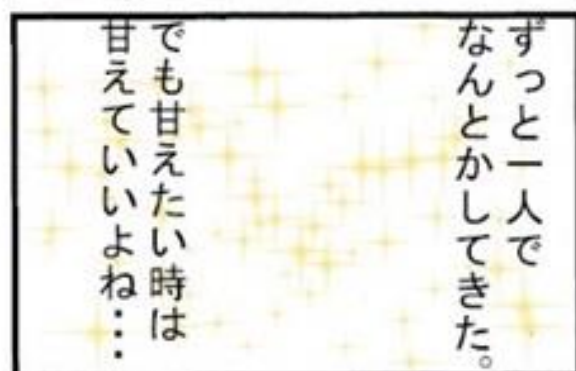 ずっと一人で
なんとかしてきた。
でも甘えたい時は
甘えていいよね・・・